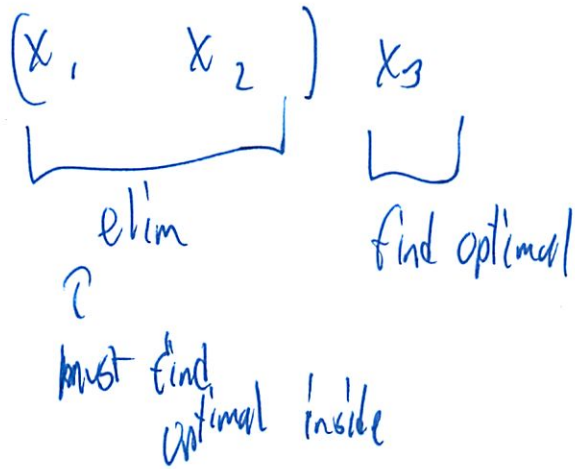 (x₁ x₂) x₃
elim find optimal
must find
optimal inside